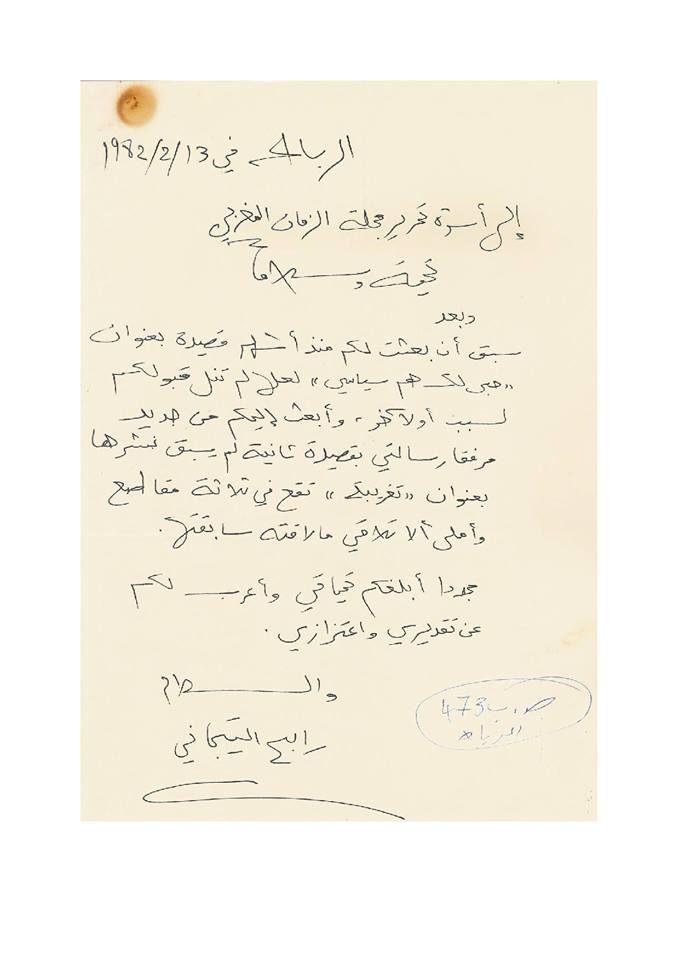 الرباط في 1982/2/13
إلى أسرة تحرير مجلة الزمان المغربي
تحية وسلاما
وبعد
سبق أن بعثت لكم منذ أشهر قصيدة بعنوان
"حبي لك هم سياسي" لعلها لم تنل قبولكم
لسبب أو لآخر، وأبعث إليكم من جديد
مرفقا رسالتي بقصيدة ثانية لم يسبق نشرها
بعنوان "تغريبة" تقع في ثلاثة مقاطع
وأملي ألا تلاقي ما لاقته سابقتها.
مجددا أبلغكم تحياتي وأعرب لكم
عن تقديري واعتزازي.
والسلام
رابح التيجاني
ص.ب 473
الرباط